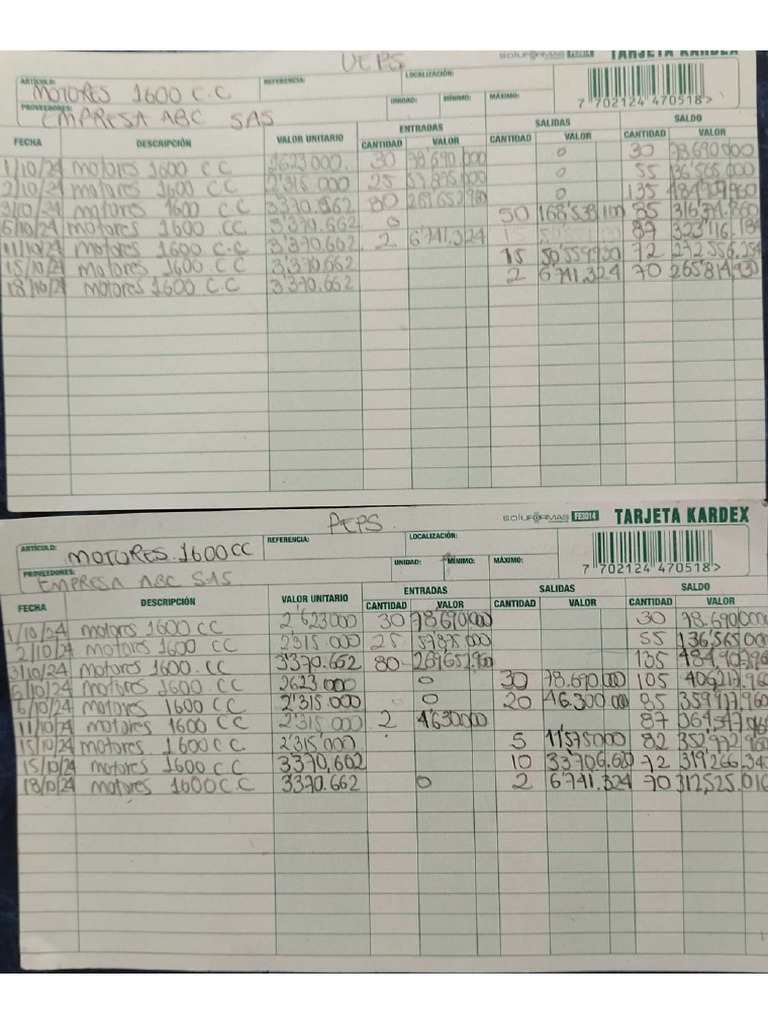 UEPS
SOLUFORMAS TARJETA KARDEX
ARTÍCULO: MOTORES 1600 C.C REFERENCIA: LOCALIZACIÓN:
PROVEEDORES: EMPRESA ABC SAS UNIDAD: MÍNIMO: MÁXIMO: 7 702124 470518>
FECHA DESCRIPCIÓN VALOR UNITARIO ENTRADAS SALIDAS SALDO
CANTIDAD VALOR CANTIDAD VALOR CANTIDAD VALOR
1/10/24 motores 1600 CC 2623000. 30 78'690.000 0 30 78.690.000
2/10/24 motores 1600 CC 2'315 000 25 57.875.000 0 55 136.565.000
3/10/24 motores 1600 CC 3370.662 80 269652.960 0 135
6/10/24 motores 1600 CC 3'370.662 0 50 168'533.100 85
11/10/24 motores 1600 C-C 3'370.662 2 6'741.324 87 323'116.184
15/10/24 motores 1600.CC 3'370.662 15 72
18/10/24 motores 1600 C.C 3'370.662 2 6'741.324 70
PEPS.
SOLUFORMAS FE3014 TARJETA KARDEX
ARTÍCULO: MOTORES.1600CC REFERENCIA: LOCALIZACIÓN:
PROVEEDORES: EMPRESA ABC SAS UNIDAD: MÍNIMO: MÁXIMO: 7 702124 470518>
FECHA DESCRIPCIÓN VALOR UNITARIO ENTRADAS SALIDAS SALDO
CANTIDAD VALOR CANTIDAD VALOR CANTIDAD VALOR
1/10/24 motores 1600 CC 2'623000 30 78690000 30 78.690,000
2/10/24 motores 1600 CC 2'315.000 25 57875 000 55 136'565.000
3/10/24 motores 1600.CC 3'370.662 80 269652.960 135
6/10/24 motores 1600 CC 2623 000 0 30 78.690.000 105 406217.960
6/10/24 motores 1600 CC 2'315.000 0 20 46.300.000 85 359917.960
11/10/24 motores 1600 CC 2'315.000 2 4'630000 87
15/10/24 motores 1600 CC 2'315'000 5 11'575000 82 352'972.960
15/10/24 motores 1600 CC 3370,662 10 33'706.620 72 319'266.340
18/10/24 motores 1600C.C 3370.662 0 2 6'741.324 70 312,525.016